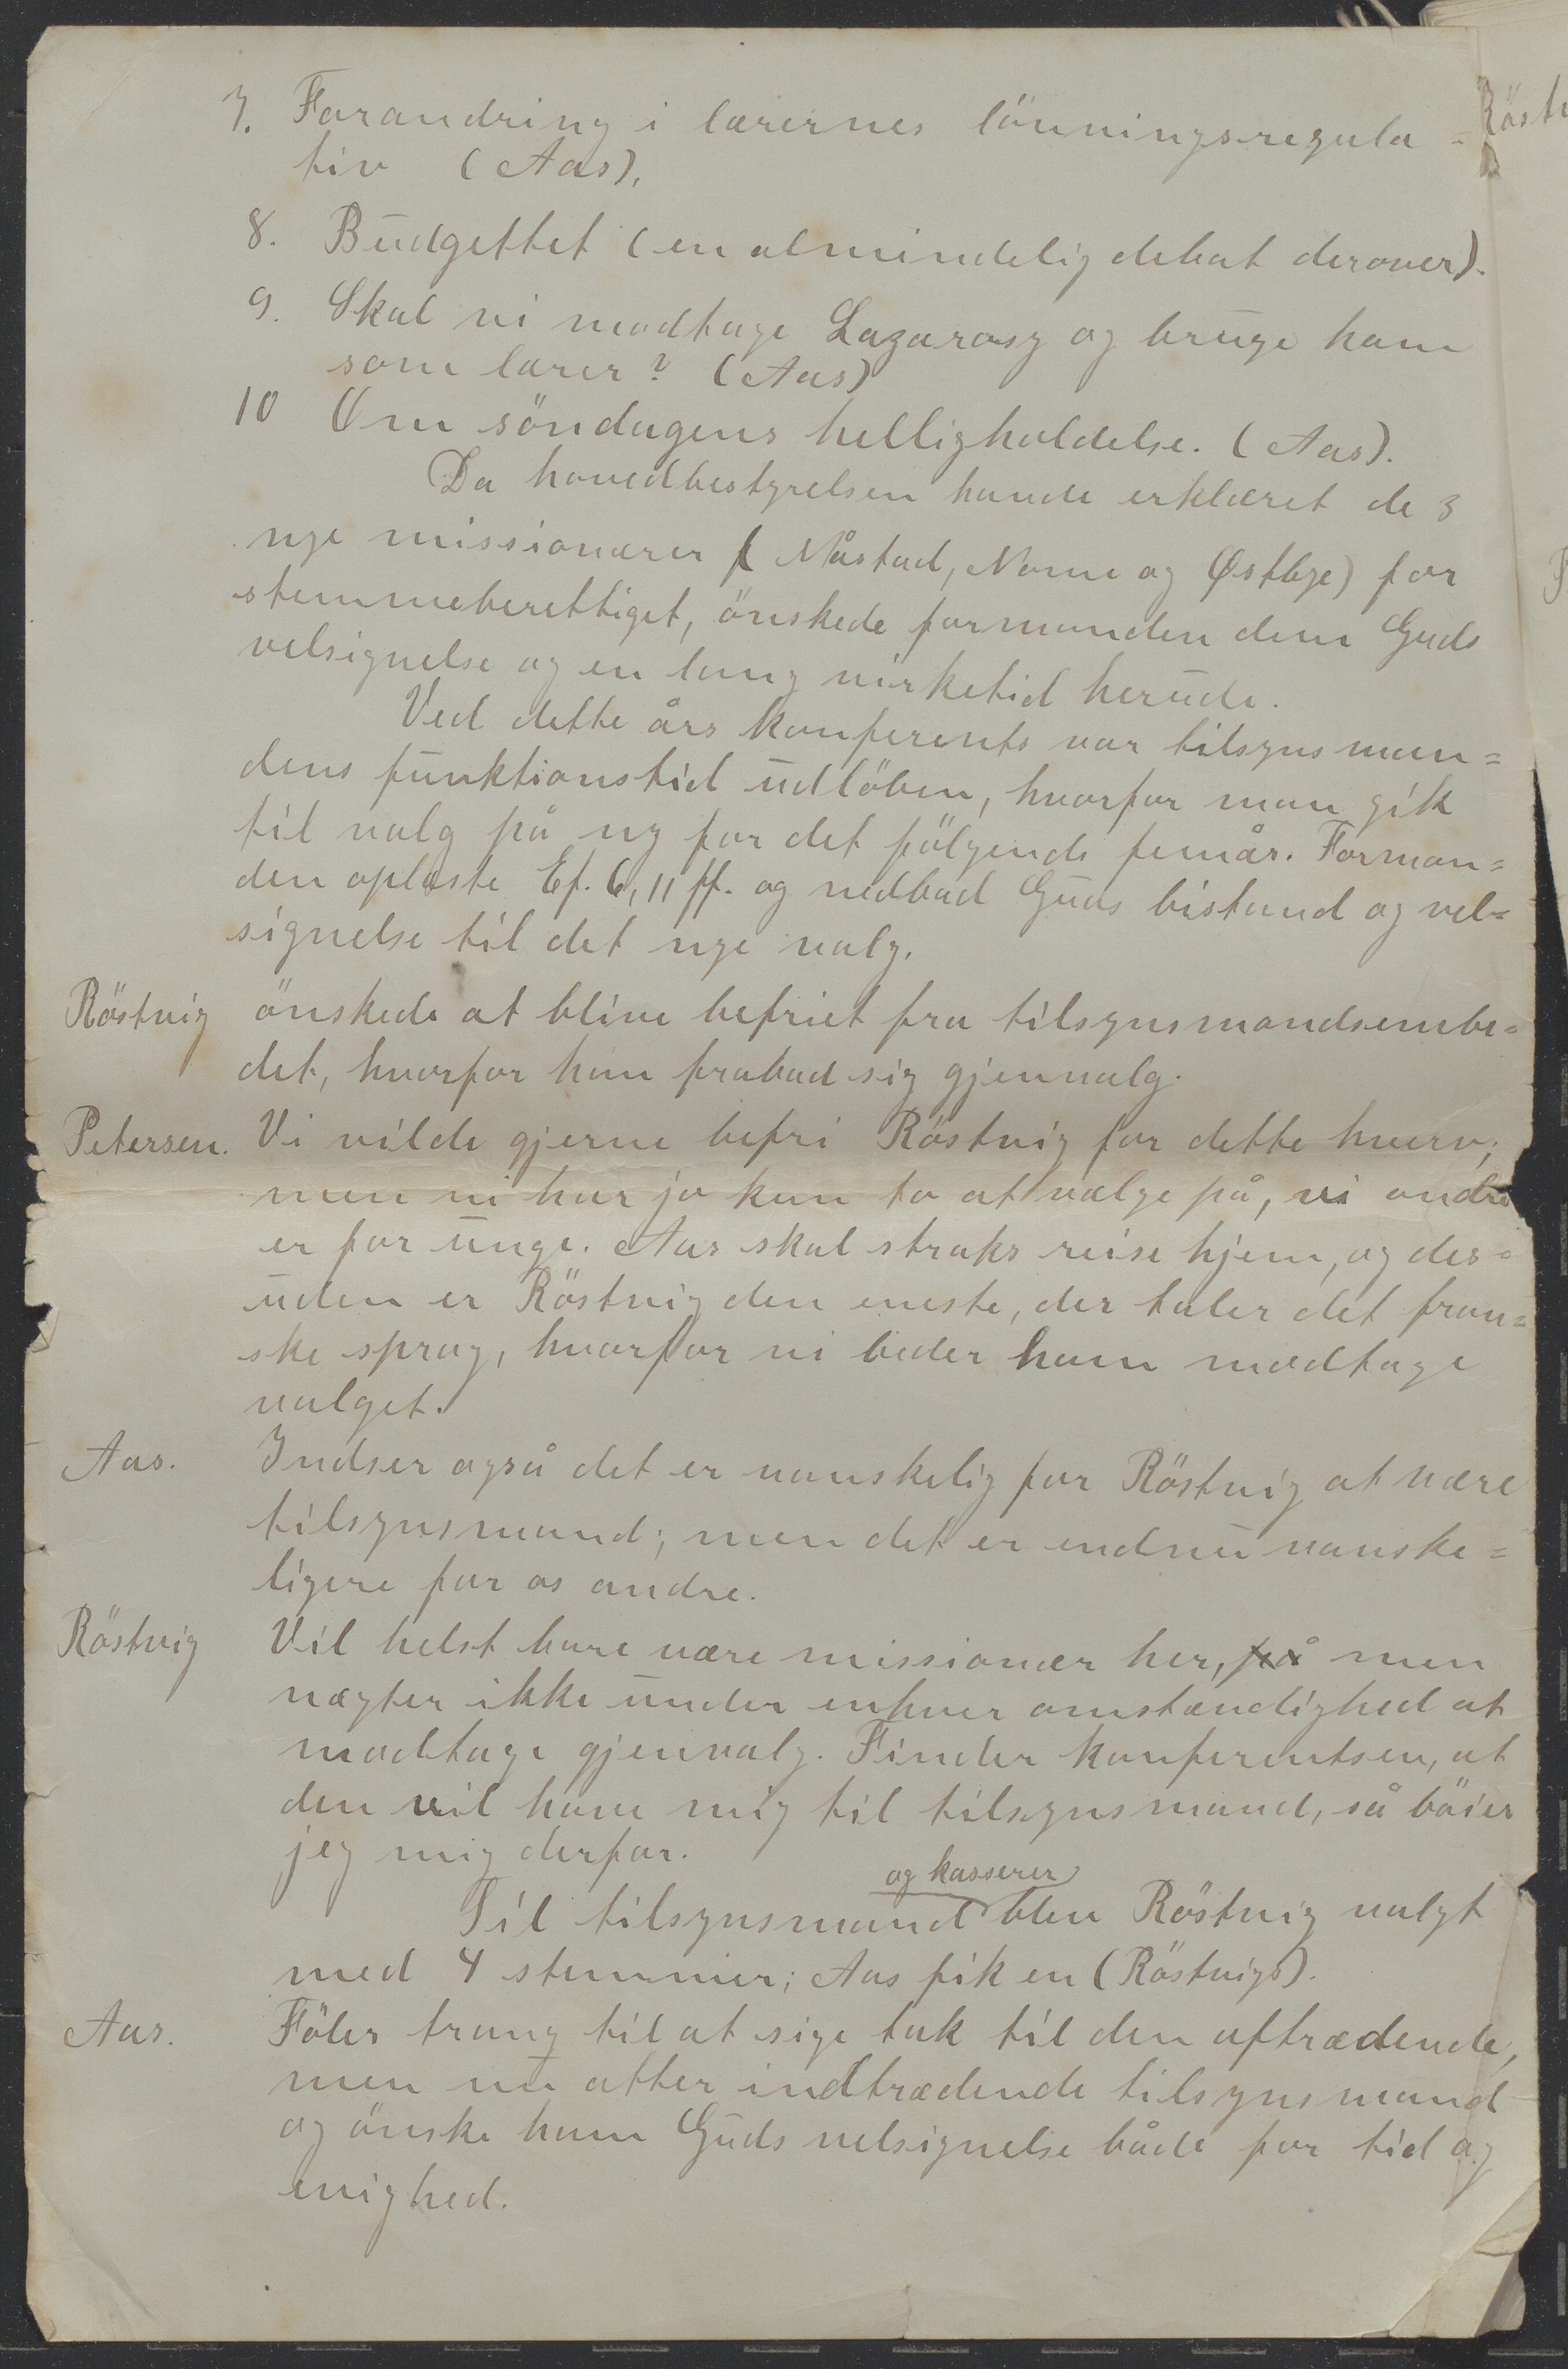 7. Forandring i lærernes lönningsregula=
tiv (Aas).
8. Budgettet (en almindelig debat derover).
9. Skal vi modtage Lazarosy og bruge ham
som lærer? (Aas)
10 Om söndagens helligholdelse. (Aas).
Da hovedbestyrelsen havde erklæret de 3
nye missionærer ( Måstad, Nome og Østbye) for
stemmeberettiget, önskede formanden dem Guds
velsignelse og en lang virketid herude.
Ved dette års konferents var tilsynsman=
dens funktionstid udlöben, hvorfor man gik
til valg på ny for det fölgende femår. Forman=
den oplæste Ef. 6, 11 ff. og nedbad Guds bistand og vel=
signelse til det nye valg.
Röstvig önskede at blive befriet fra tilsynsmandsembe=
det, hvorfor han frabad sig gjenvalg.
Petersen. Vi vilde gjerne befri Röstvig for dette hverv;
men vi har jo kun to at vælge på, vi andre
er for unge. Aas skal straks reise hjem, og des=
uden er Röstvig den eneste, der taler det fran=
ske sprog, hvorfor vi beder ham modtage
valget.
Aas. Indser også det er vanskelig for Röstvig at være
tilsynsmand; men det er endnu vanske=
ligere for os andre.
Röstvig Vil helst bare være missionær her, på men
nægter ikke under enhver omstændighed at
modtage gjenvalg. Finder konferentsen, at
den vil have mig til tilsynsmand, så böier
jeg mig derfor.
og kasserer
Til tilsynsmand blev Röstvig valgt
med 4 stemmer; Aas fik en (Röstvigs).
Aas. Föler trang til at sige tak til den aftrædende,
men nu atter indtrædende tilsynsmand
og önske ham Guds velsignelse både for tid og
evighed.